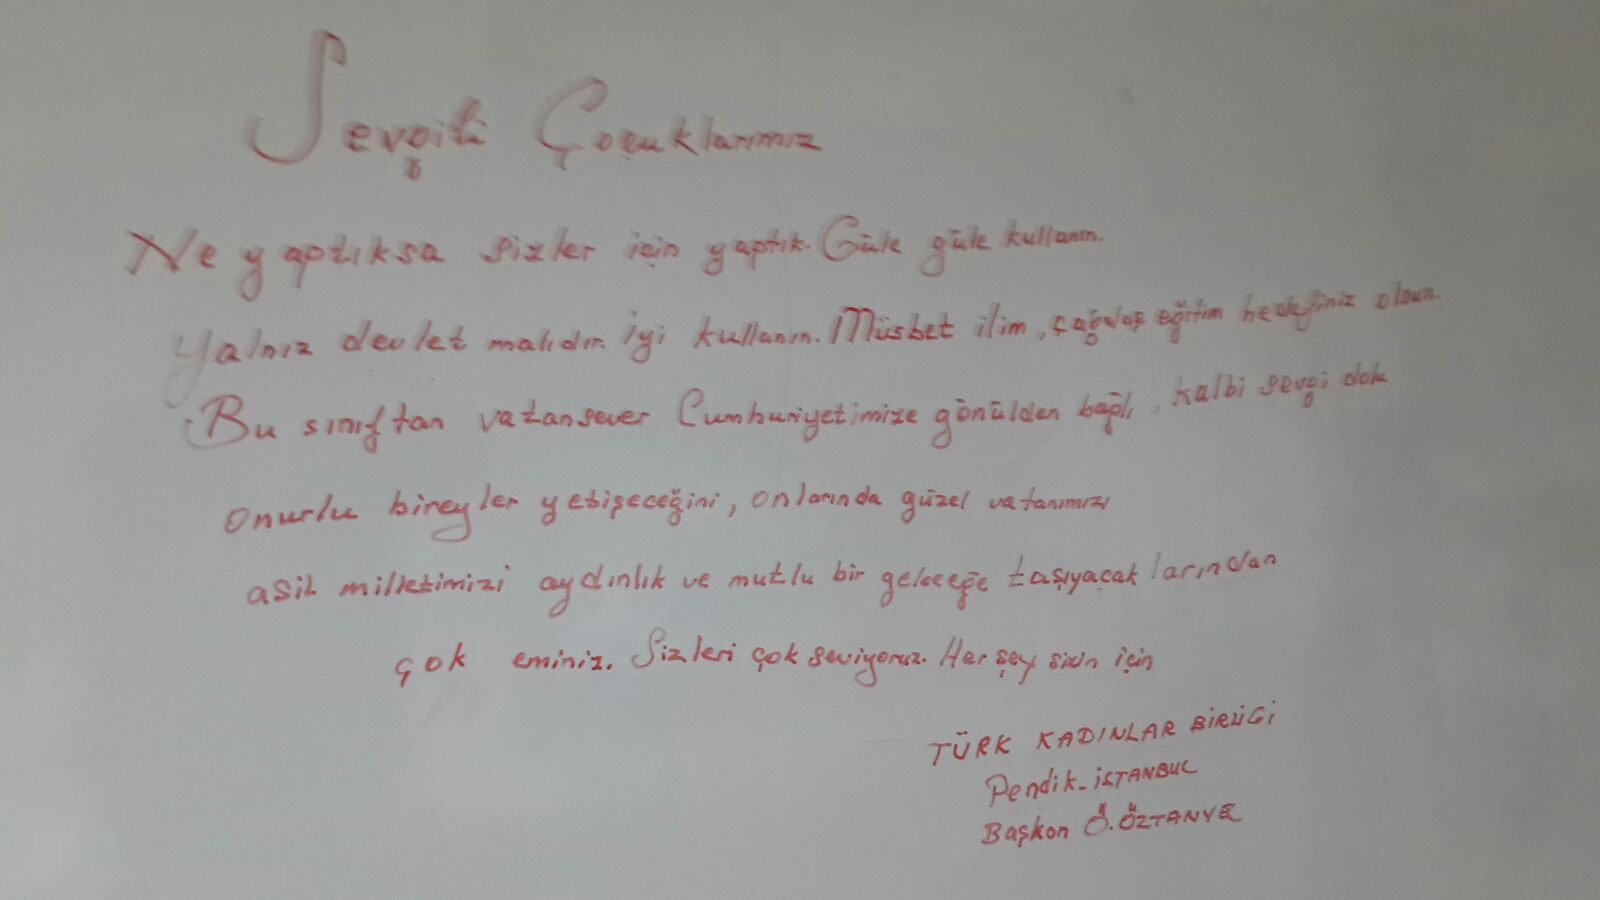 Sevgili Çocuklarımız
Ne yaptıksa sizler için yaptık. Güle güle kullanın.
Yalnız devlet malıdır. İyi kullanın. Müsbet ilim, çağdaş eğitim hedefiniz olsun.
Bu sınıftan vatansever Cumhuriyetimize gönülden bağlı, kalbi sevgi dolu
onurlu bireyler yetişeceğini, onlarında güzel vatanımızı
asil milletimizi aydınlık ve mutlu bir geleceğe taşıyacaklarından
çok eminiz. Sizleri çok seviyoruz. Her şey sizin için
TÜRK KADINLAR BİRLİĞİ
Pendik-İSTANBUL
Başkan Ö. ÖZTANYEL